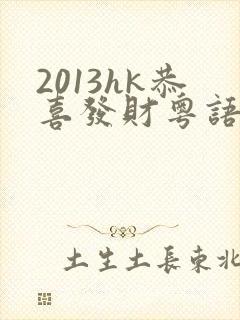 2013hk恭
喜發財粵語
土生土長東北